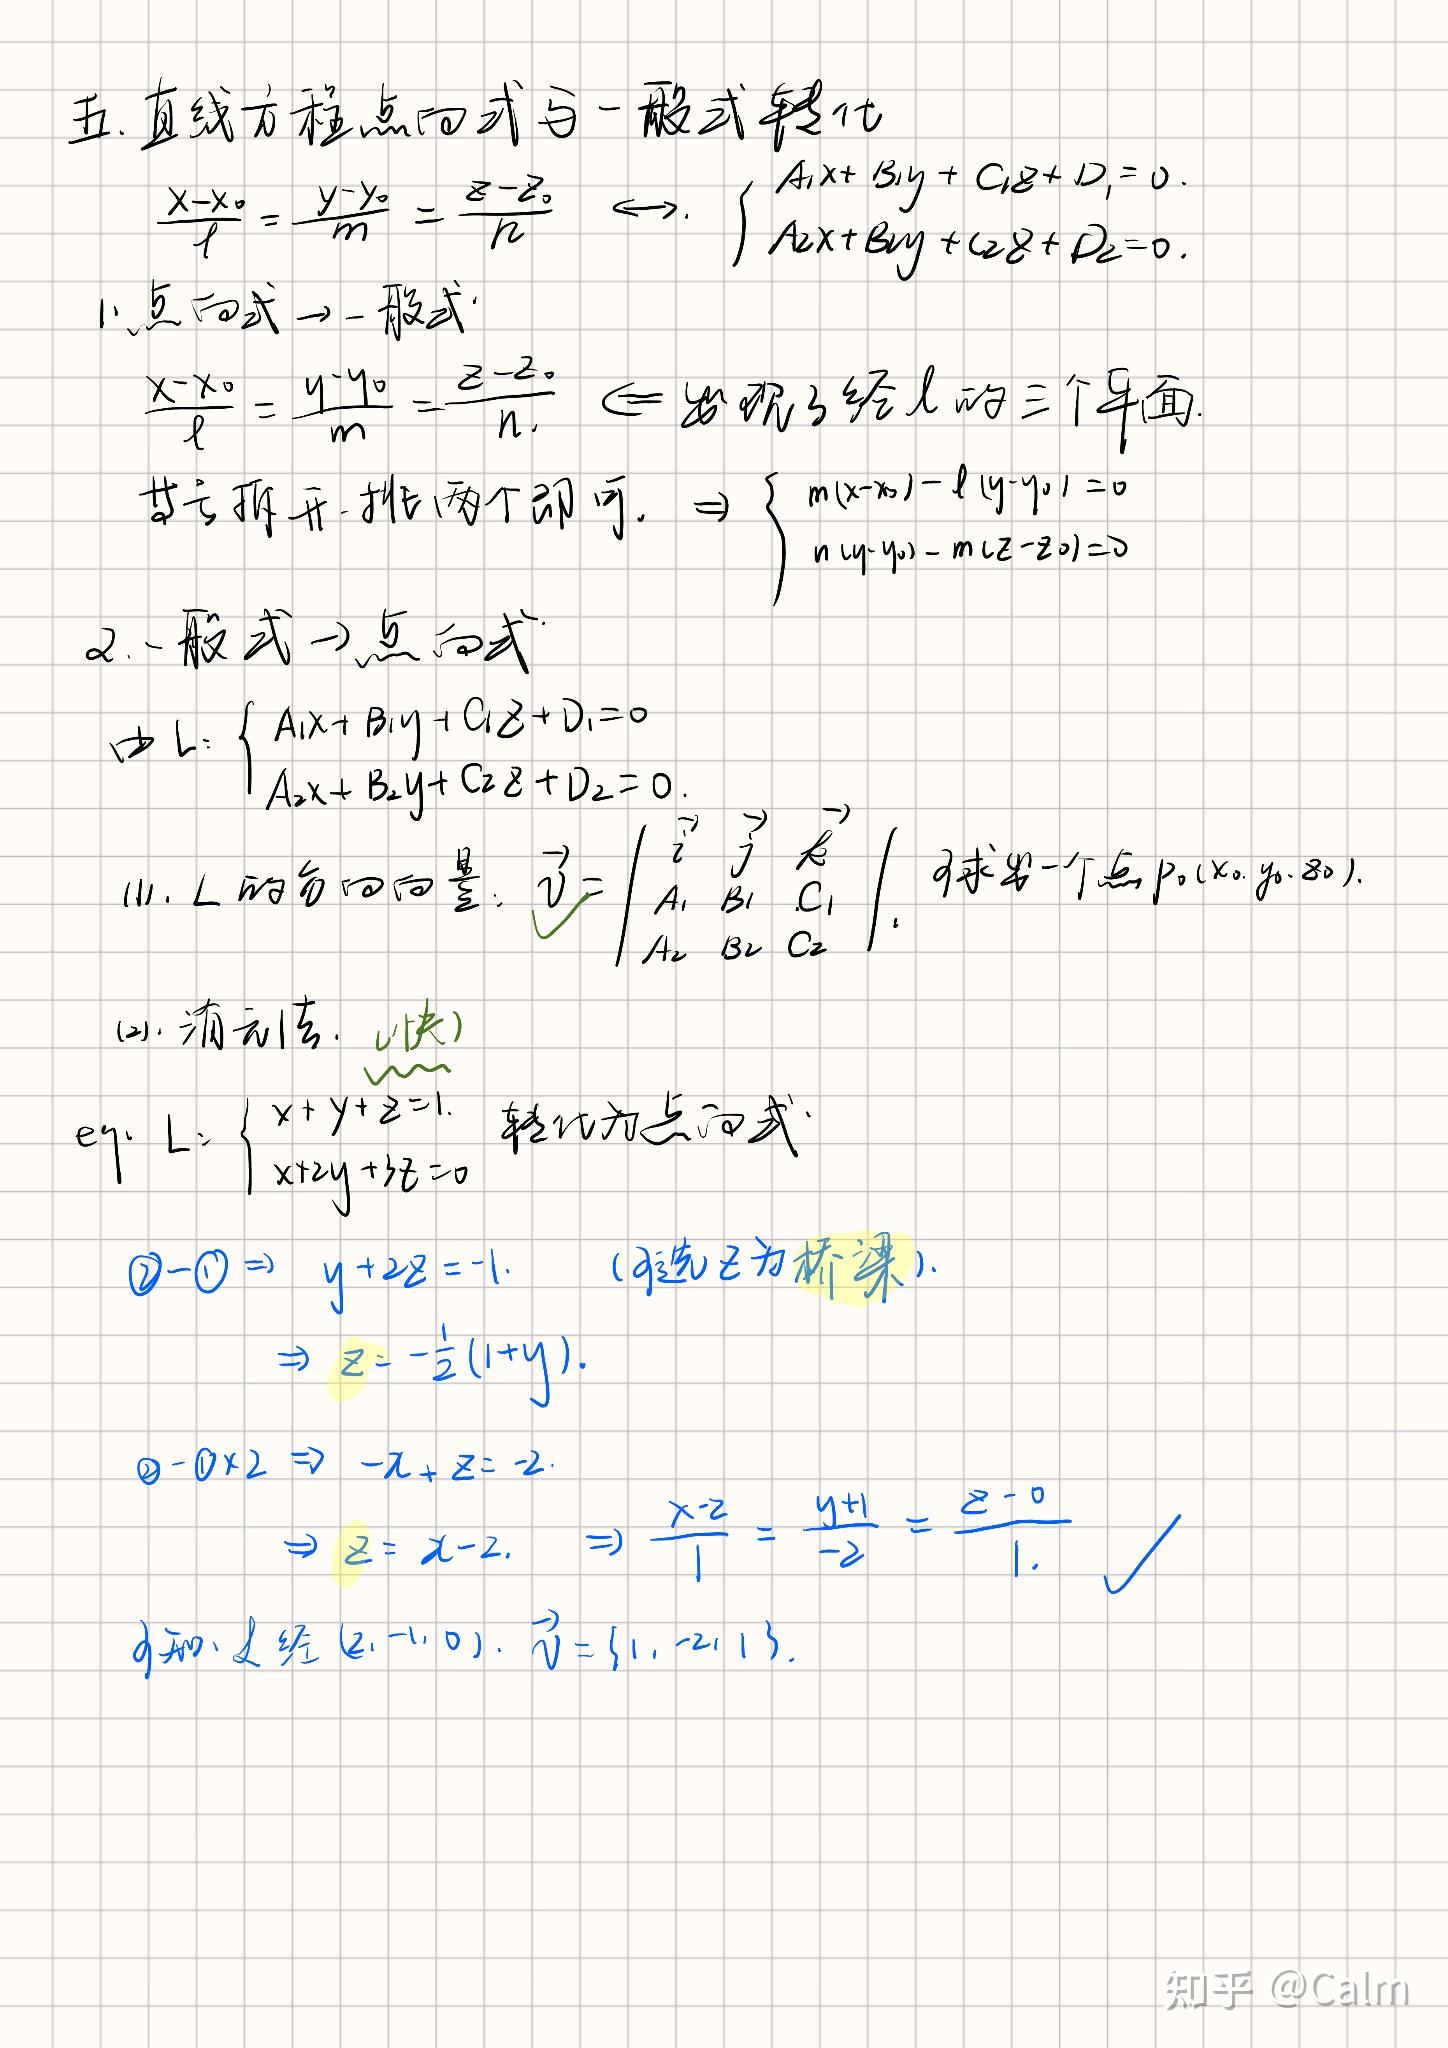 五.直线方程点向式与一般式转化
(x-x₀)/l = (y-y₀)/m = (z-z₀)/n ↔. { A₁x+B₁y+C₁z+D₁=0.
A₂x+B₂y+C₂z+D₂=0.
1.点向式→一般式.
(x-x₀)/l = (y-y₀)/m = (z-z₀)/n. ⇐ 发现了经l的三个平面.
等号拆开.挑两个即可. ⇒ { m(x-x₀)-l(y-y₀)=0
n(y-y₀)-m(z-z₀)=0
2.一般式→点向式.
由L: { A₁x+B₁y+C₁z+D₁=0
A₂x+B₂y+C₂z+D₂=0.
(1). L的方向向量: v⃗= | i⃗ j⃗ k⃗
A₁ B₁ C₁
A₂ B₂ C₂ |. 求出一个点P₀(x₀.y₀.z₀).
(2).消元法. ✓(快)
eg. L: { x+y+z=1.
x+2y+3z=0
转化为点向式.
②-①⇒ y+2z=-1. (选z为桥梁).
⇒ z=-1/2(1+y).
②-①×2 ⇒ -x+z=-2.
⇒ z=x-2. ⇒ (x-2)/1 = (y+1)/-2 = (z-0)/1. ✓
可知.L经(2,-1,0). v⃗={1,-2,1}.
知乎 @Calm